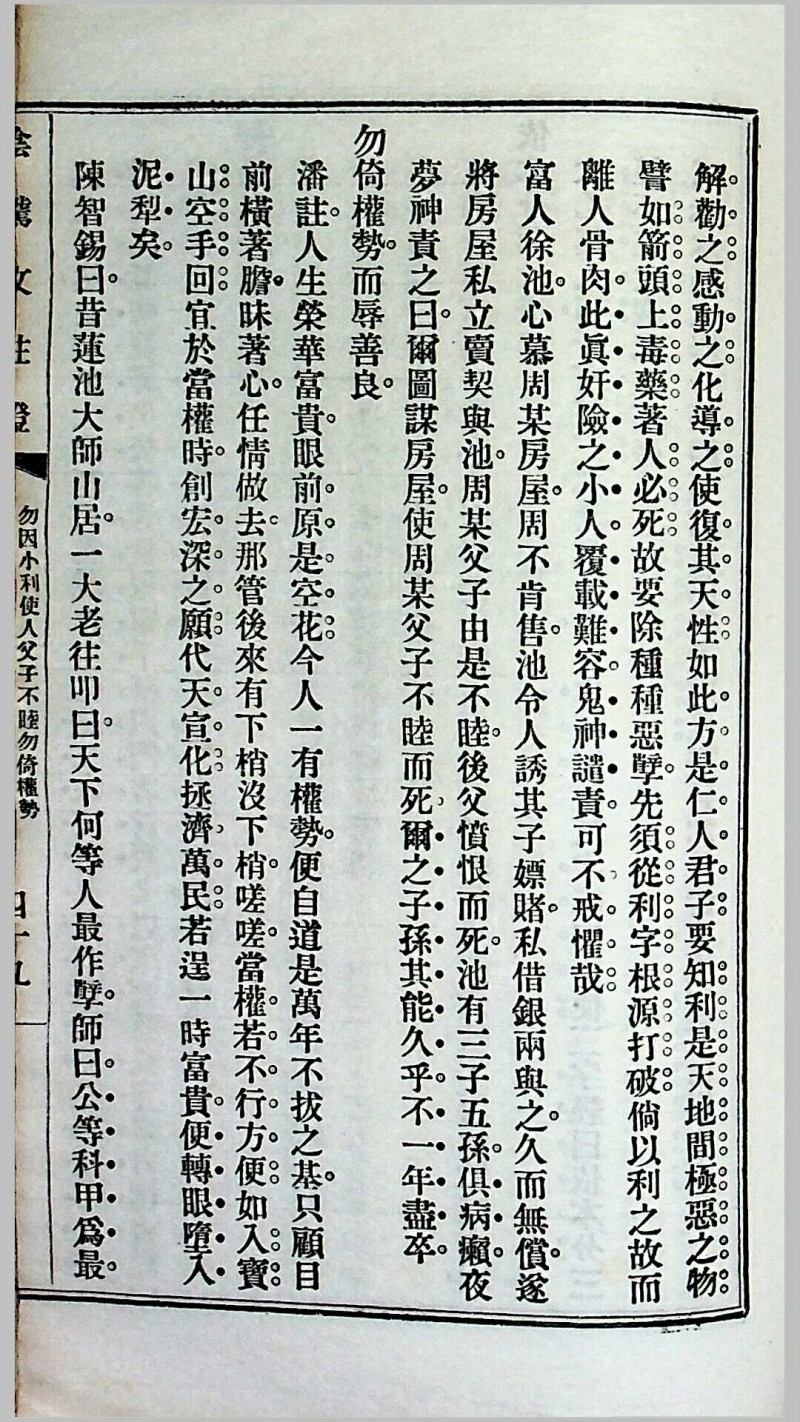 解勸之感動之化導之使復其天性如此方是仁人君子要知利是天地間極惡之物
譬如箭頭上毒藥著人必死故要除種種惡孽先須從利字根源打破倘以利之故而
離人骨肉此眞奸險之小人覆載難容鬼神譴責可不戒懼哉
富人徐池心慕周某房屋周不肯售池令人誘其子嫖賭私借銀兩與之久而無償遂
將房屋私立賣契與池周某父子由是不睦後父憤恨而死池有三子五孫俱病癩夜
夢神責之曰爾圖謀房屋使周某父子不睦而死爾之子孫其能久乎不一年盡卒
勿倚權勢而辱善良
潘註人生榮華富貴眼前原是空花今人一有權勢便自道是萬年不拔之基只顧目
前橫著膽昧著心任情做去那管後來有下梢沒下梢嗟嗟當權若不行方便如入寶
山空手回宜於當權時創宏深之願代天宣化拯濟萬民若逞一時富貴便轉眼墮入
泥犁矣
陳智錫曰昔蓮池大師山居一大老往叩曰天下何等人最作孽師曰公等科甲爲最
陰騭文註證 勿因小利使人父子不睦勿倚權勢 四十九